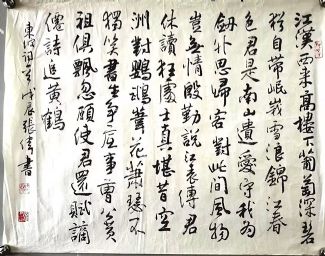 江漢西来高樓下葡萄深碧
猶自带岷峨雪浪錦江春
色君是南山遺愛守我为
劍外思歸客對此间風物
豈无情殷勤説江表傳君
休讀狂處士真堪惜空
洲對鸚鵡葦花蕭瑟不
獨笑書生争底事曹公黄
祖俱飘忽願使君還賦謫
僊詩追黄鶴
東坡詞 戊辰張書